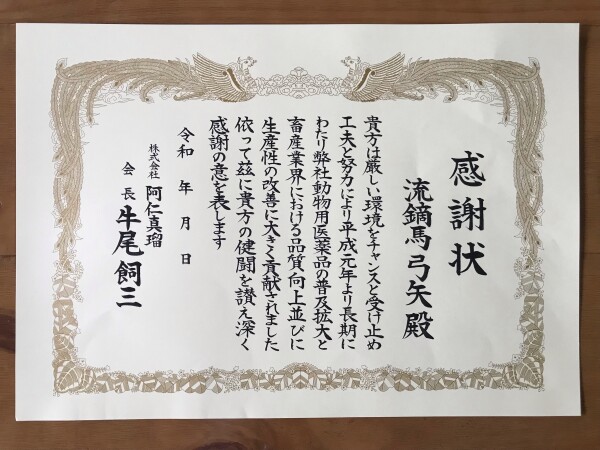 感謝状
流鏑馬弓矢殿
貴方は厳しい環境をチャンスと受け止め
工夫と努力により平成元年より長期に
わたり弊社動物用医薬品の普及拡大と
畜産業界における品質向上並びに
生産性の改善に大きく貢献されました
依って茲に貴方の健闘を讃え深く
感謝の意を表します
令和 年 月 日
株式会社 阿仁真瑠
会長 牛尾飼三